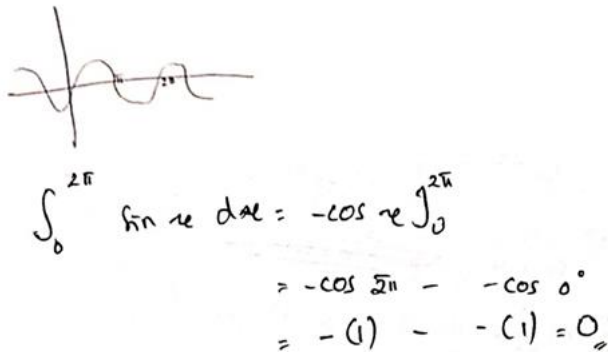 π 2π
∫₀^{2π} sin x dx = -cos x ]₀^{2π}
= -cos 2π - -cos 0°
= -(1) - -(1) = 0